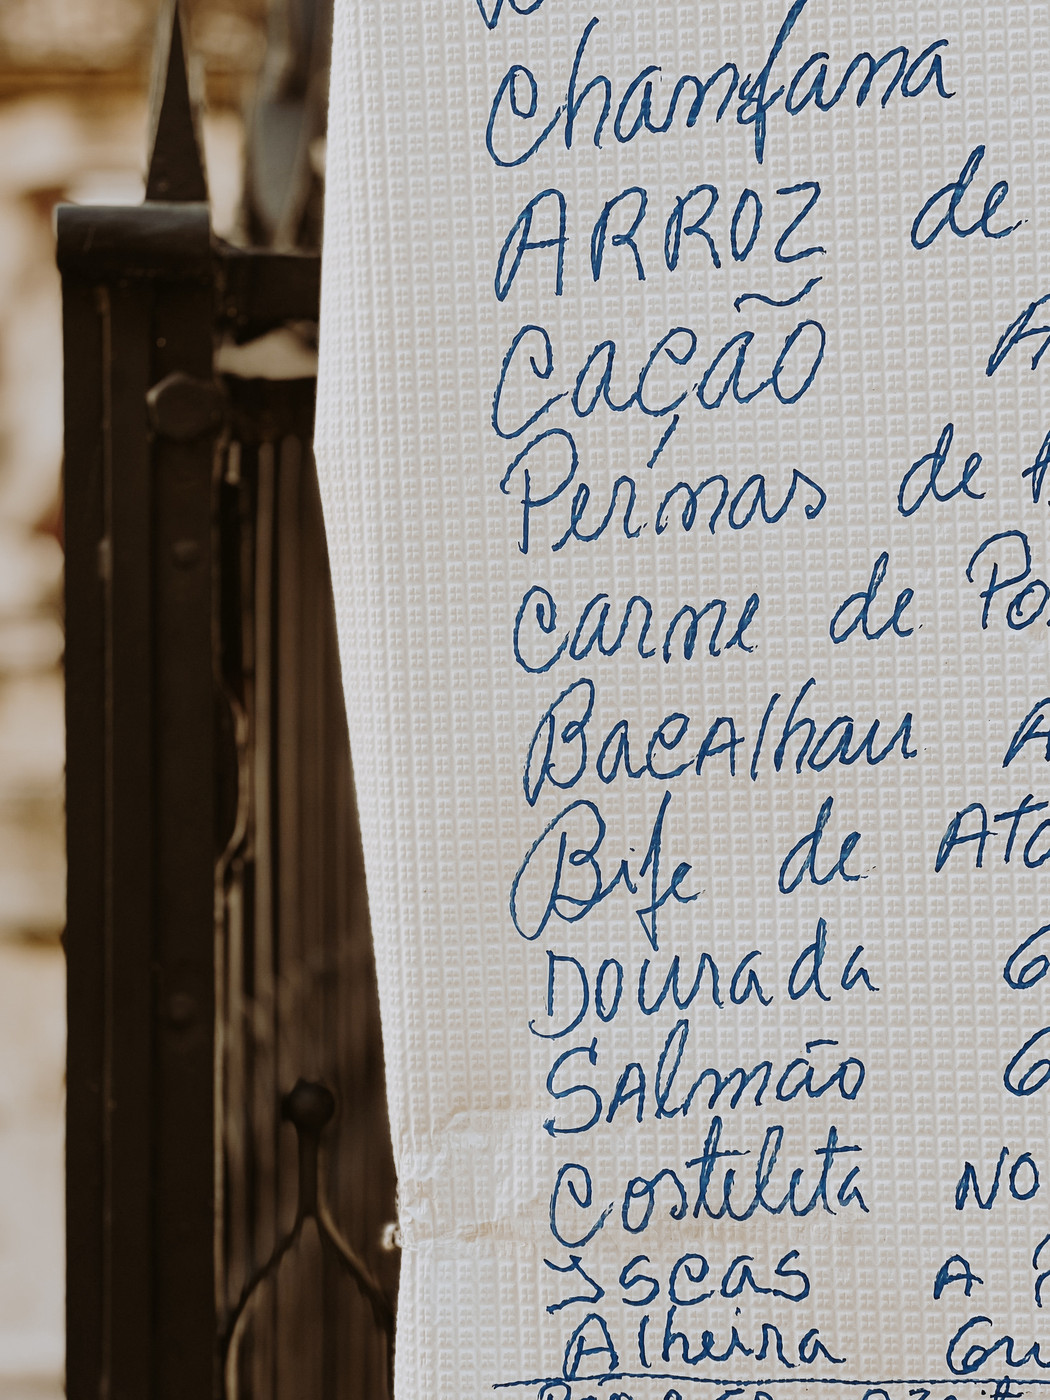 Chanfana
ARROZ de
Cação A
Pernas de
Carne de Po
Bacalhau A
Bife de Ato
Dourada G
Salmão G
Costeleta NO
Iscas A
Alheira Gu